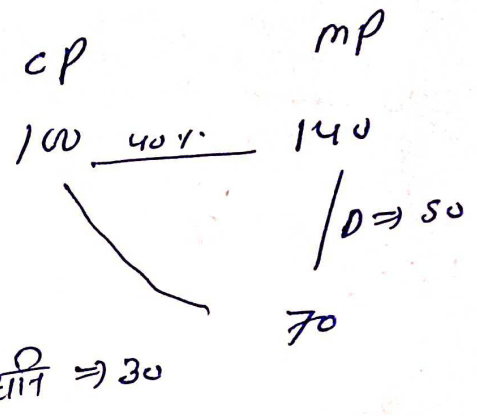 CP MP
100 40% 140
D ⇒ 50
70
⇒ 30